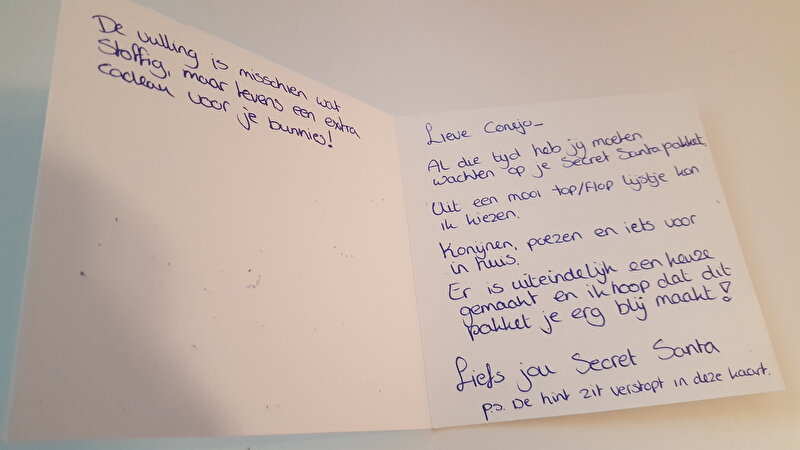 De vulling is misschien wat
stoffig, maar tevens een extra
cadeau voor je bunnies!
Lieve Conejo_
Al die tijd heb jij moeten
wachten op je Secret Santapakket.
Uit een mooi top/flop lijstje kon
ik kiezen.
Konijnen, poezen en iets voor
in huis.
Er is uiteindelijk een keuze
gemaakt en ik hoop dat dit
pakket je erg blij maakt!
Liefs jou Secret Santa
p.s. De hint zit verstopt in deze kaart.